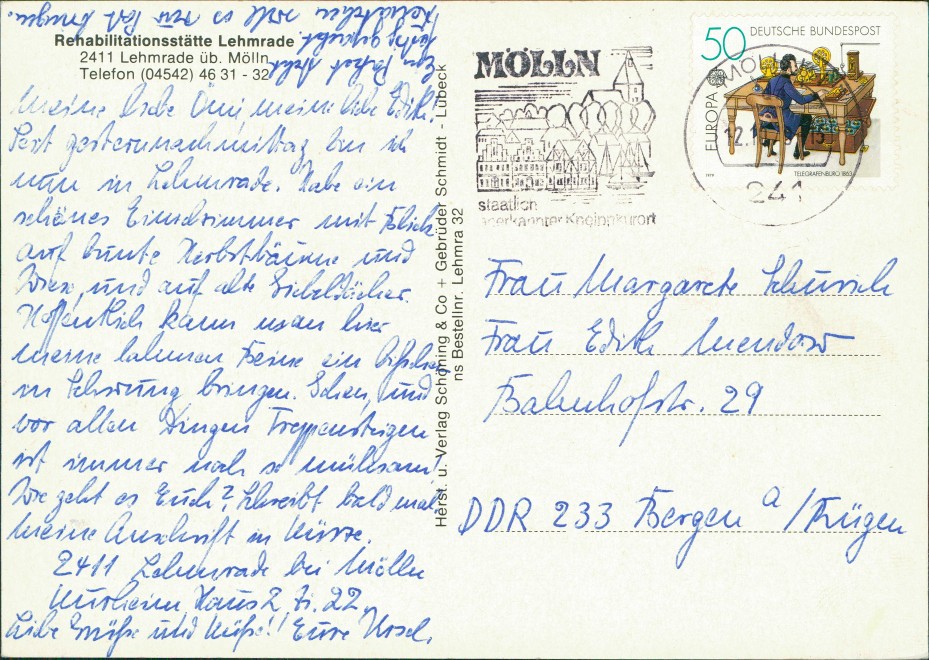 Rehabilitationsstätte Lehmrade
2411 Lehmrade üb. Mölln
Telefon (04542) 46 31 - 32
Meine liebe Omi, meine liebe Edith!
Seit gesternnachmittag bin ich
nun in Lehmrade. Habe ein
schönes Einzelzimmer mit Blick
auf bunte Herbstbäume und
Wiese, und auf alte Giebeldächer.
Hoffentlich kann man hier
meine lahmen Beine ein bißchen
in Schwung bringen. Gehen, und
vor allen Dingen Treppensteigen
ist immer noch so mühsam!
Wie geht es Euch? Schreibt bald mal
meine Anschrift in Kürze.
2411 Lehmrade bei Mölln
Kurheim Haus 2, Zi. 22
Liebe Grüße und Küße! Eure Ursel.
Herst. u. Verlag Schöning & Co + Gebrüder Schmidt - Lübeck
ns Bestellnr. Lehmra 32
MÖLLN
staatlich
anerkannter Kneippkurort
50 DEUTSCHE BUNDESPOST
EUROPA
TELEGRAFENBÜRO 1863
1979
MÖLLN
12.1
241
Frau Margarete
Frau Edith
Bahnhofstr. 29
DDR 233 Bergen a/Rügen